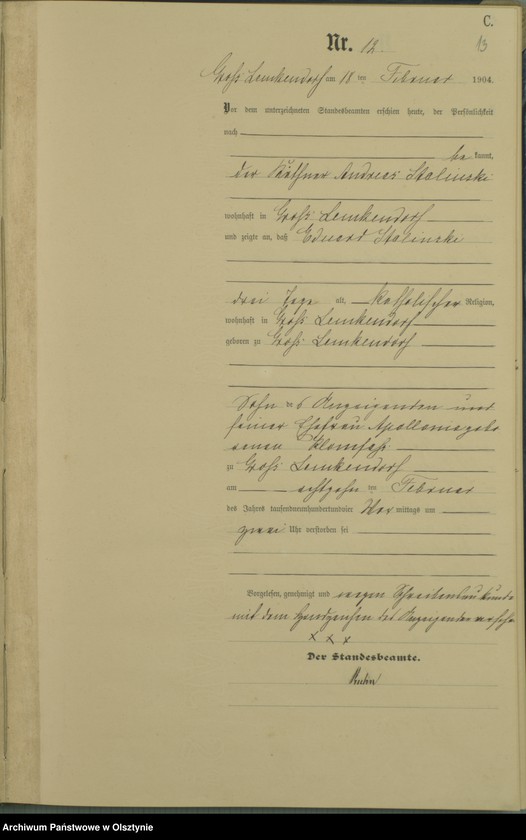 C.
13
Nr. 12.
Groß Lemkendorf am 18 ten Februar 1904.
Vor dem unterzeichneten Standesbeamten erschien heute, der Persönlichkeit
nach
be kannt,
der Käthner Andreas Stalinski
wohnhaft in Groß Lemkendorf
und zeigte an, daß Eduard Stalinski
drei Tage alt, katholischer Religion,
wohnhaft in Groß Lemkendorf
geboren zu Groß Lemkendorf
Sohn des Anzeigenden und
seiner Ehefrau Apollonia gebo
renen
zu Groß Lemkendorf
am achtzehn ten Februar
des Jahres tausendneunhundertundvier Vor mittags um
zwei Uhr verstorben sei
Vorgelesen, genehmigt und wegen Schreibensunkunde
mit dem Handzeichen des Anzeigenden versehen
x x x
Der Standesbeamte.
Archiwum Państwowe w Olsztynie